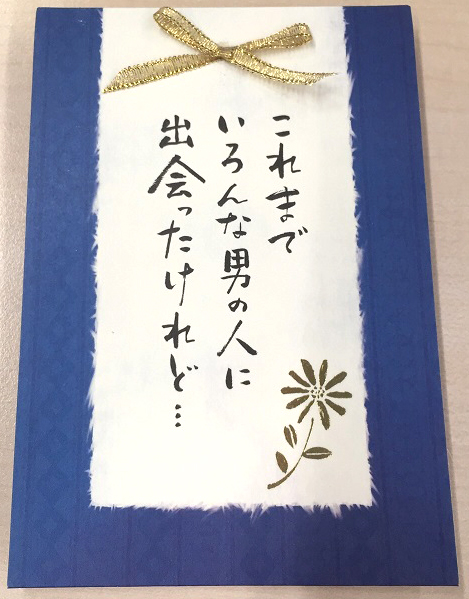 これまで
いろんな男の人に
出会ったけれど…